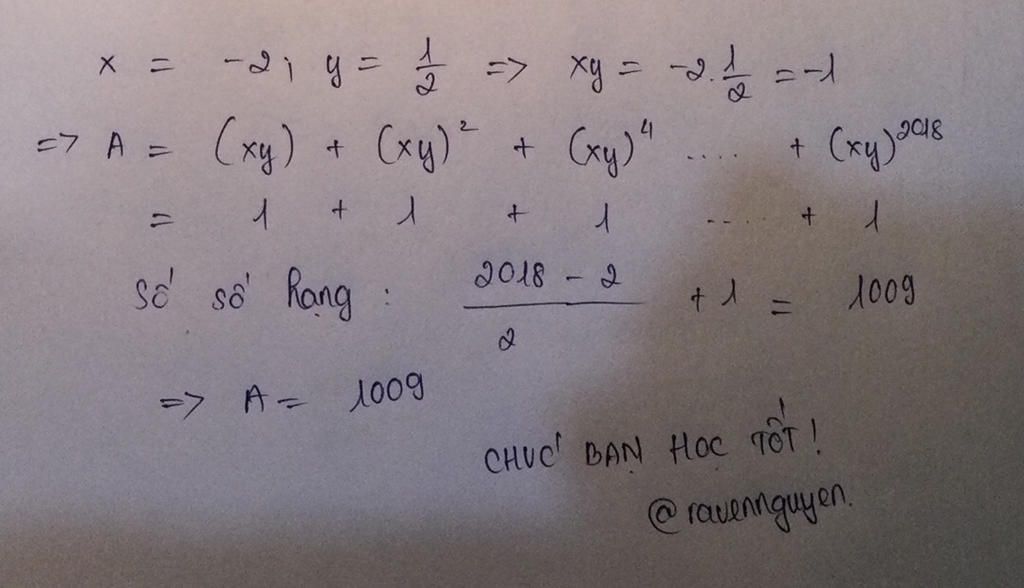 x = -2; y = 1/2 => xy = -2.1/2 = -1
=> A = (xy) + (xy)² + (xy)⁴ .... + (xy)²⁰¹⁸
= 1 + 1 + 1 ..... + 1
Số số hạng : (2018 - 2)/2 + 1 = 1009
=> A = 1009
CHÚC BẠN HỌC TỐT!
@ravennguyen.